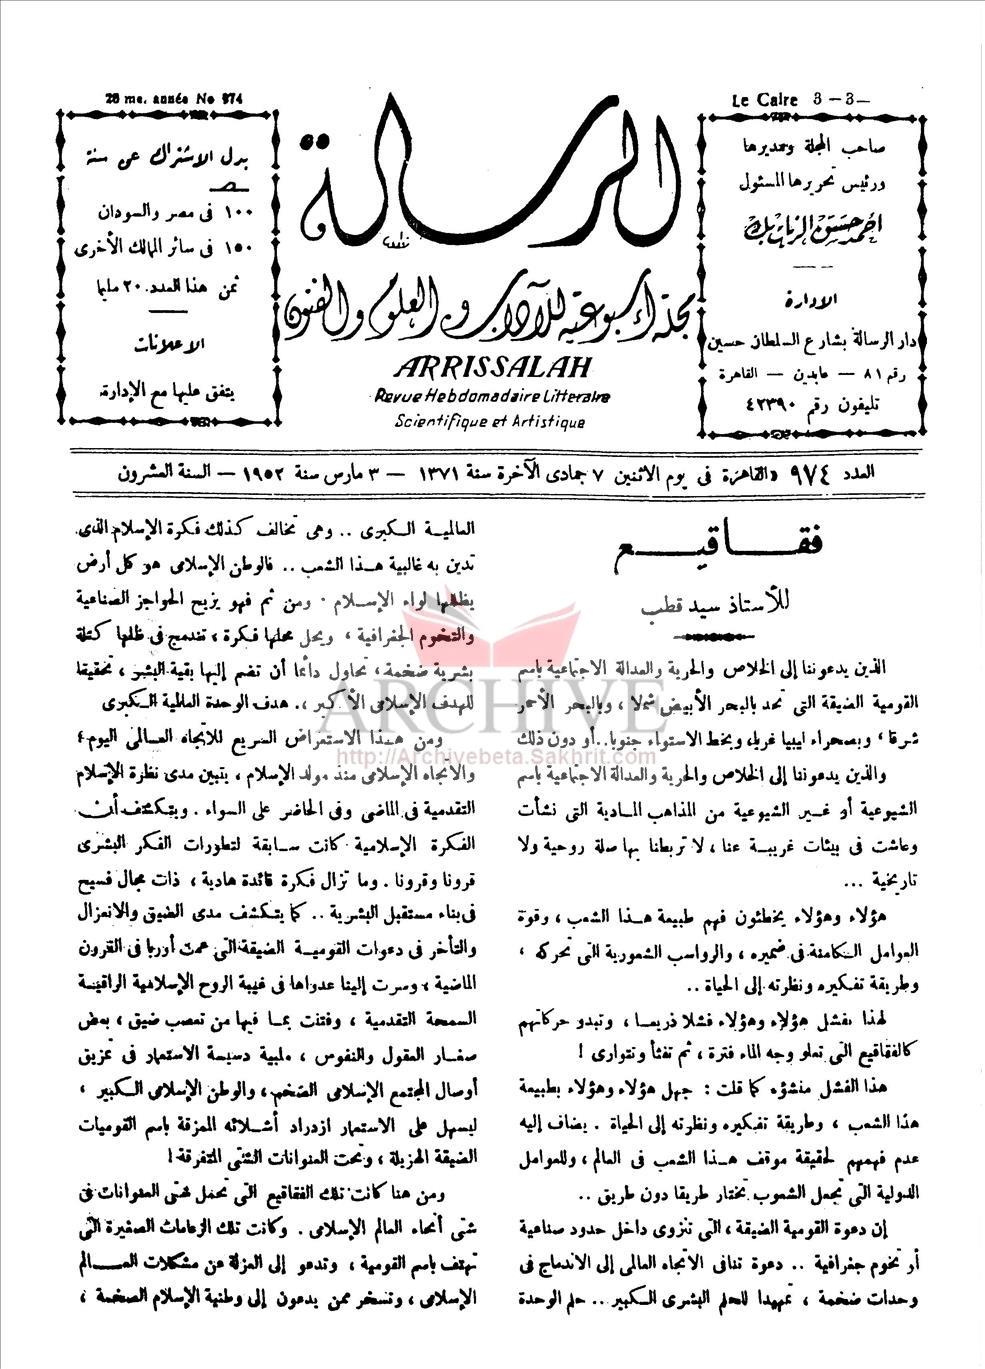 Le Caire 3 - 3 -
صاحب المجلة ومديرها
ورئيس تحريرها المسئول
احمد حسن الزيات بك
الإدارة
دار الرسالة بشارع السلطان حسين
رقم ٨١ — عابدين — القاهرة
تليفون رقم ٤٢٣٩٠
الرسالة
مجلة أسبوعية للآداب والعلوم والفنون
ARRISSALAH
Revue Hebdomadaire Litteraire
Scientifique et Artistique
20 me. année No 974
بدل الاشتراك عن سنة
١٠٠ فى مصر والسودان
١٥٠ فى سائر الممالك الأخرى
ثمن هذا العدد ٢٠ مليما
الاعلانات
يتفق عليها مع الإدارة
العدد ٩٧٤ «القاهرة فى يوم الاثنين ٧ جمادى الآخرة سنة ١٣٧١ — ٣ مارس سنة ١٩٥٢ — السنة العشرون
فقاقيع
للأستاذ سيد قطب
الذين يدعوننا إلى الخلاص والحرية والعدالة الاجتماعية باسم
القومية الضيقة التى تحد بالبحر الأبيض شمالا ، وبالبحر الأحمر
شرقا ، وبصحراء ليبيا غربا، وبخط الاستواء جنوبا.. أو دون ذلك
والذين يدعوننا إلى الخلاص والحرية والعدالة الاجتماعية باسم
الشيوعية أو غير الشيوعية من المذاهب المادية التى نشأت
وعاشت فى بيئات غريبة عنا ، لا تربطنا بها صلة روحية ولا
تاريخية ...
هؤلاء وهؤلاء يخطئون فهم طبيعة هذا الشعب ، وقوة
العوامل الكامنة فى ضميره ، والرواسب الشعورية التى تحركه ،
وطريقة تفكيره ونظرته إلى الحياة ..
لهذا يفشل هؤلاء وهؤلاء فشلا ذريعا ، وتبدو حركاتهم
كالفقاقيع التى تعلو وجه الماء فترة ، ثم تنفثأ وتتوارى !
هذا الفشل منشؤه كما قلت : جهل هؤلاء وهؤلاء بطبيعة
هذا الشعب ، وطريقة تفكيره ونظرته إلى الحياة . يضاف إليه
عدم فهمهم لحقيقة موقف هذا الشعب فى العالم ، وللعوامل
الدولية التى تجعل الشعوب تختار طريقا دون طريق ..
إن دعوة القومية الضيقة ، التى تنزوى داخل حدود صناعية
أو تخوم جغرافية .. دعوة تنافى الاتجاه العالمى إلى الاندماج فى
وحدات ضخمة ، تمهيدا للحلم البشرى الكبير .. حلم الوحدة
العالمية الكبرى .. وهى تخالف كذلك فكرة الإسلام الذى
تدين به غالبية هذا الشعب .. فالوطن الإسلامى هو كل أرض
يظللها لواء الإسلام . ومن ثم فهو يزيح الحواجز الصناعية
والتخوم الجغرافية ، ويحل محلها فكرة ، تندمج فى ظلها كتلة
بشرية ضخمة ، تحاول دائما أن تضم إليها بقية البشر ، تحقيقا
للهدف الإسلامى الأكبر ، . هدف الوحدة العالمية الكبرى
ومن هذا الاستعراض السريع للاتجاه العالمى اليوم ،
والاتجاه الإسلامى منذ مولد الإسلام ، يتبين مدى نظرة الإسلام
التقدمية فى الماضى وفى الحاضر على السواء . ويتكشف أن
الفكرة الإسلامية كانت سابقة لتطورات الفكر البشرى
قرونا وقرونا . وما تزال فكرة قائدة هادية ، ذات مجال فسيح
فى بناء مستقبل البشرية .. كما يتكشف مدى الضيق والانعزال
والتأخر فى دعوات القومية الضيقة التى عمت أوربا فى القرون
الماضية ، وسرت إلينا عدواها فى غيبة الروح الإسلامية الراقية
السمحة التقدمية ، وفتنت بما فيها من تعصب ضيق ، بعض
صغار العقول والنفوس ، ملبية دسيسة الاستعمار فى تمزيق
أوصال المجتمع الإسلامى الضخم ، والوطن الإسلامى الكبير ،
ليسهل على الاستعمار ازدراد أشلائه الممزقة باسم القوميات
الضيقة الهزيلة ، وتحت العنوانات الشتى المتفرقة !
ومن هنا كانت تلك الفقاقيع التى تحمل شتى العنوانات فى
شتى أنحاء العالم الإسلامى . وكانت تلك الزعامات الصغيرة التى
تهتف باسم القومية ، وتدعو إلى العزلة عن مشكلات العالم
الإسلامى ، وتسخر ممن يدعون إلى وطنية الإسلام الضخمة ،
ARCHIVE
http://Archivebeta.Sakhrit.com